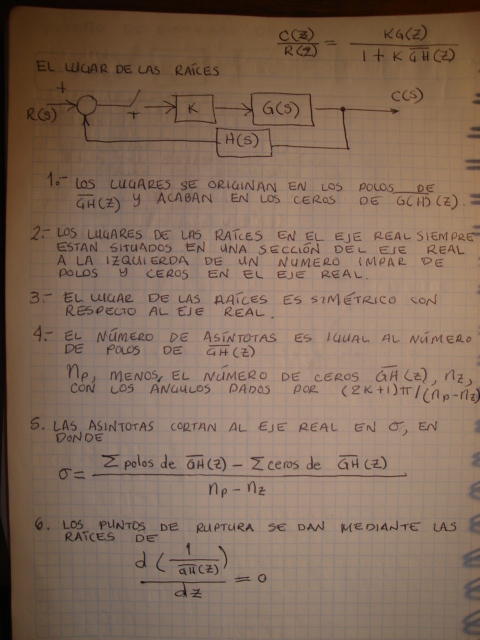 C(z)/R(z) = KG(z)/(1 + K G̅H̅(z))
EL LUGAR DE LAS RAÍCES
+
R(S)
T
K
G(S)
C(S)
H(S)
1.- LOS LUGARES SE ORIGINAN EN LOS POLOS DE
G̅H̅(z) Y ACABAN EN LOS CEROS DE G(H)(z).
2.- LOS LUGARES DE LAS RAÍCES EN EL EJE REAL SIEMPRE
ESTAN SITUADOS EN UNA SECCIÓN DEL EJE REAL
A LA IZQUIERDA DE UN NUMERO IMPAR DE
POLOS Y CEROS EN EL EJE REAL.
3.- EL LUGAR DE LAS RAÍCES ES SIMÉTRICO CON
RESPECTO AL EJE REAL.
4.- EL NÚMERO DE ASÍNTOTAS ES IGUAL AL NÚMERO
DE POLOS DE G̅H̅(z)
np, MENOS, EL NÚMERO DE CEROS G̅H̅(z), nz,
CON LOS ANGULOS DADOS POR (2K+1)π/(np-nz)
5. LAS ASINTOTAS CORTAN AL EJE REAL EN σ, EN
DONDE
σ = (Σ polos de G̅H̅(z) - Σ ceros de G̅H̅(z))/(np - nz)
6. LOS PUNTOS DE RUPTURA SE DAN MEDIANTE LAS
RAÍCES DE
d(1/G̅H̅(z))/dz = 0